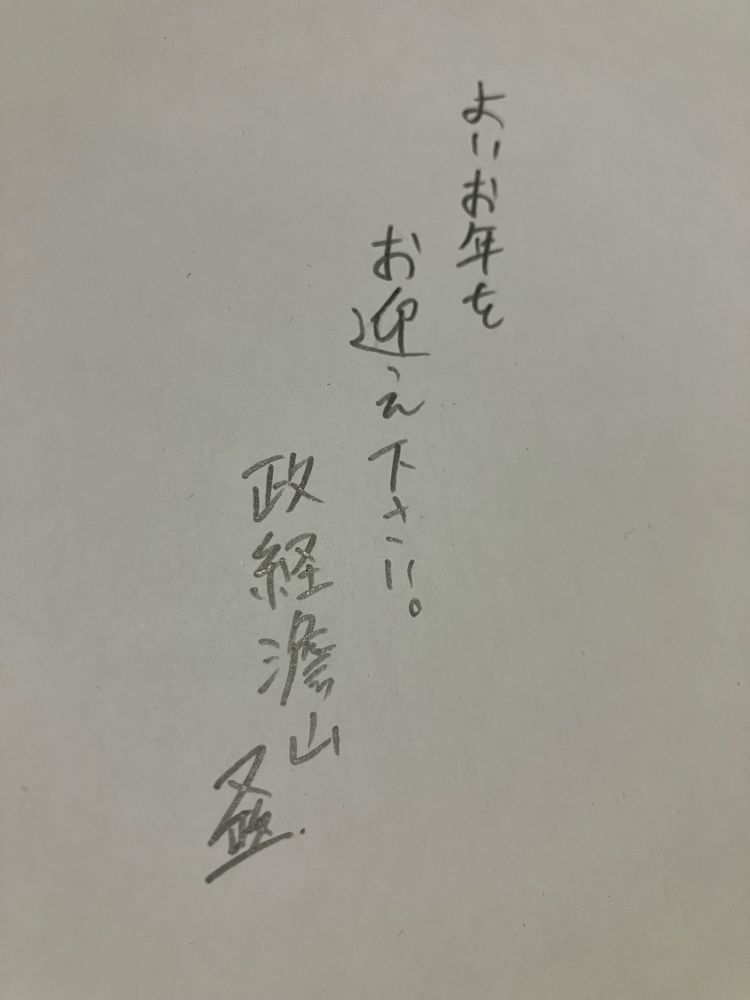 よいお年を
お迎え下さい。
政経澹山